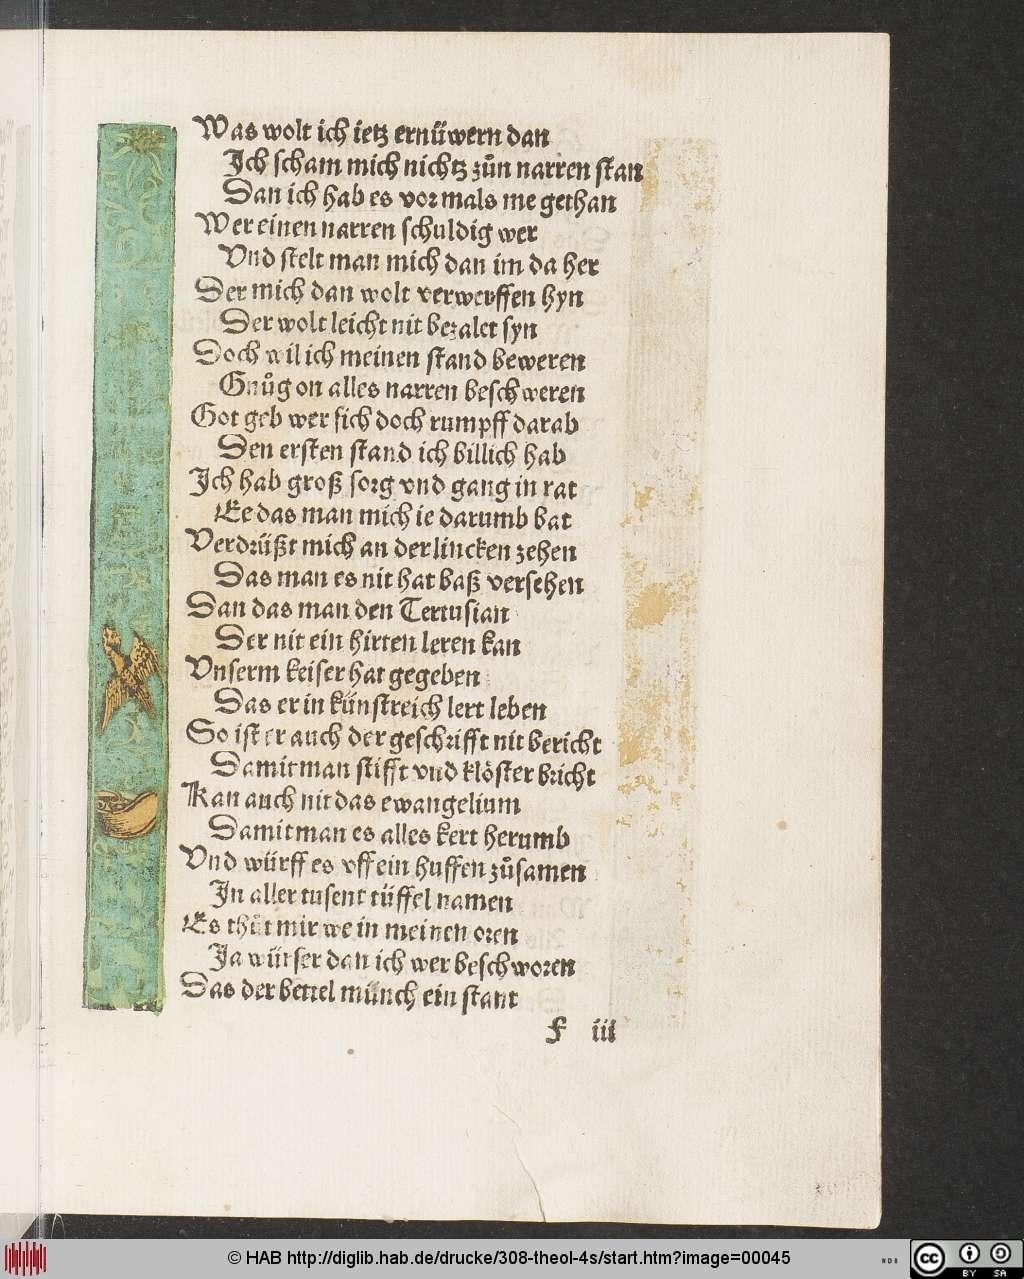 Was wolt ich ietz ernüwern dan
Ich scham mich nichtz zůn narren stan
Dan ich hab es vor mals me gethan
Wer einen narren schuldig wer
Vnd stelt man mich dan im da her
Der mich dan wolt verwerffen hyn
Der wolt leicht nit bezalet syn
Doch wil ich meinen stand beweren
Gnůg on alles narren beschweren
Got geb wer sich doch rumpff darab
Den ersten stand ich billich hab
Ich hab groß sorg vnd gang in rat
Ee das man mich ie darumb bat
Verdrüßt mich an der lincken zehen
Das man es nit hat baß versehen
Dan das man den Tertusian
Der nit ein hirten leren kan
Vnserm keiser hat gegeben
Das er in künstreich lert leben
So ist er auch der geschrifft nit bericht
Damit man stifft vnd klöster bricht
Kan auch nit das ewangelium
Damit man es alles kert herumb
Vnd würff es vff ein huffen zůsamen
In aller tusent tüffel namen
Es thůt mir we in meinen oren
Ja würser dan ich wer beschworen
Das der bettel münch ein stant
F iii
© HAB http://diglib.hab.de/drucke/308-theol-4s/start.htm?image=00045
cc BY SA